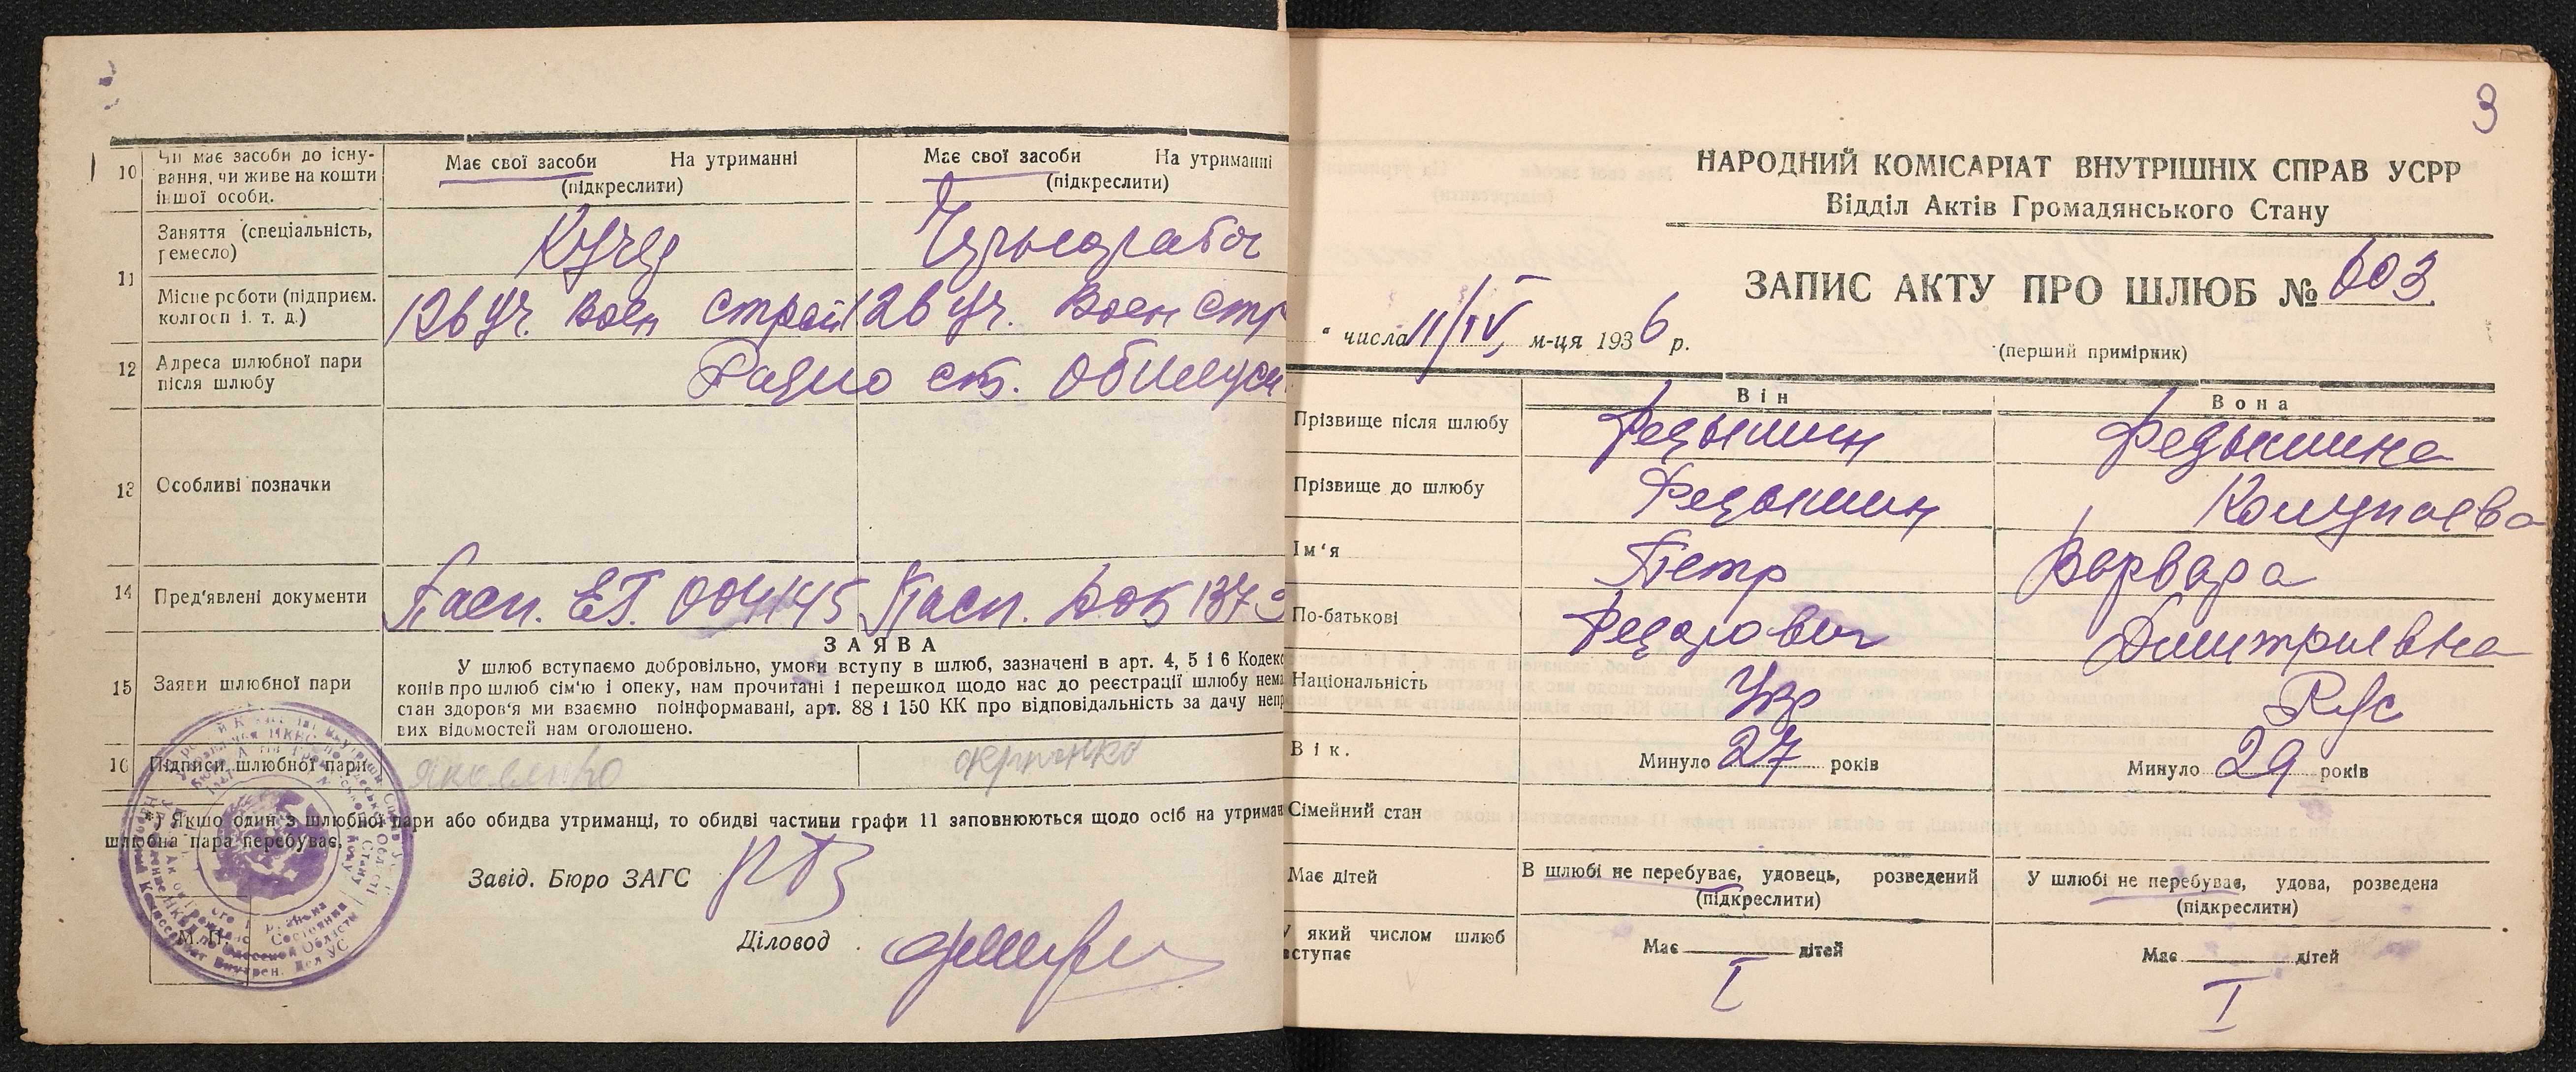 10 Чи має засоби до існування, чи живе на кошти іншої особи.
Має свої засоби На утриманні
(підкреслити)
Має свої засоби На утриманні
(підкреслити)
11 Заняття (спеціальність, ремесло)
Кучер
Чернораboч
Місце роботи (підприєм. колгосп і. т. д.)
126 Уч. Воен Строй
126 Уч. Воен Стр
12 Адреса шлюбної пари після шлюбу
Радио ст.
13 Особливі позначки
14 Пред'явлені документи
Пасп. ЕГ. 004145
Пасп.
15 Заяви шлюбної пари
ЗАЯВА
У шлюб вступаємо добровільно, умови вступу в шлюб, зазначені в арт. 4, 5 і 6 Кодекс
конів про шлюб сім'ю і опеку, нам прочитані і перешкод щодо нас до реєстрації шлюбу нема
стан здоров'я ми взаємно поінформавані, арт. 88 і 150 КК про відповідальність за дачу непр
вих відомостей нам оголошено.
16 Підписи шлюбної пари
*) Якщо один з шлюбної пари або обидва утриманці, то обидві частини графи 11 заповнюються щодо осіб на утриман
шлюбна пара перебуває.
Завід. Бюро ЗАГС
Діловод
М. П.
3
НАРОДНИЙ КОМІСАРІАТ ВНУТРІШНІХ СПРАВ УСРР
Відділ Актів Громадянського Стану
ЗАПИС АКТУ ПРО ШЛЮБ № 603
" числа 11/IV м-ця 1936 р.
(перший примірник)
Він Вона
Прізвище після шлюбу Редькин Редькина
Прізвище до шлюбу Редькин Колупаева
Ім'я Петр Варвара
По-батькові Федорович Дмитриевна
Національність Укр Рус
Вік. Минуло 27 років Минуло 29 років
Сімейний стан
Має дітей
В шлюбі не перебуває, удовець, розведений
(підкреслити)
У шлюбі не перебуває, удова, розведена
(підкреслити)
У який числом шлюб вступає
Має дітей Має дітей
I I